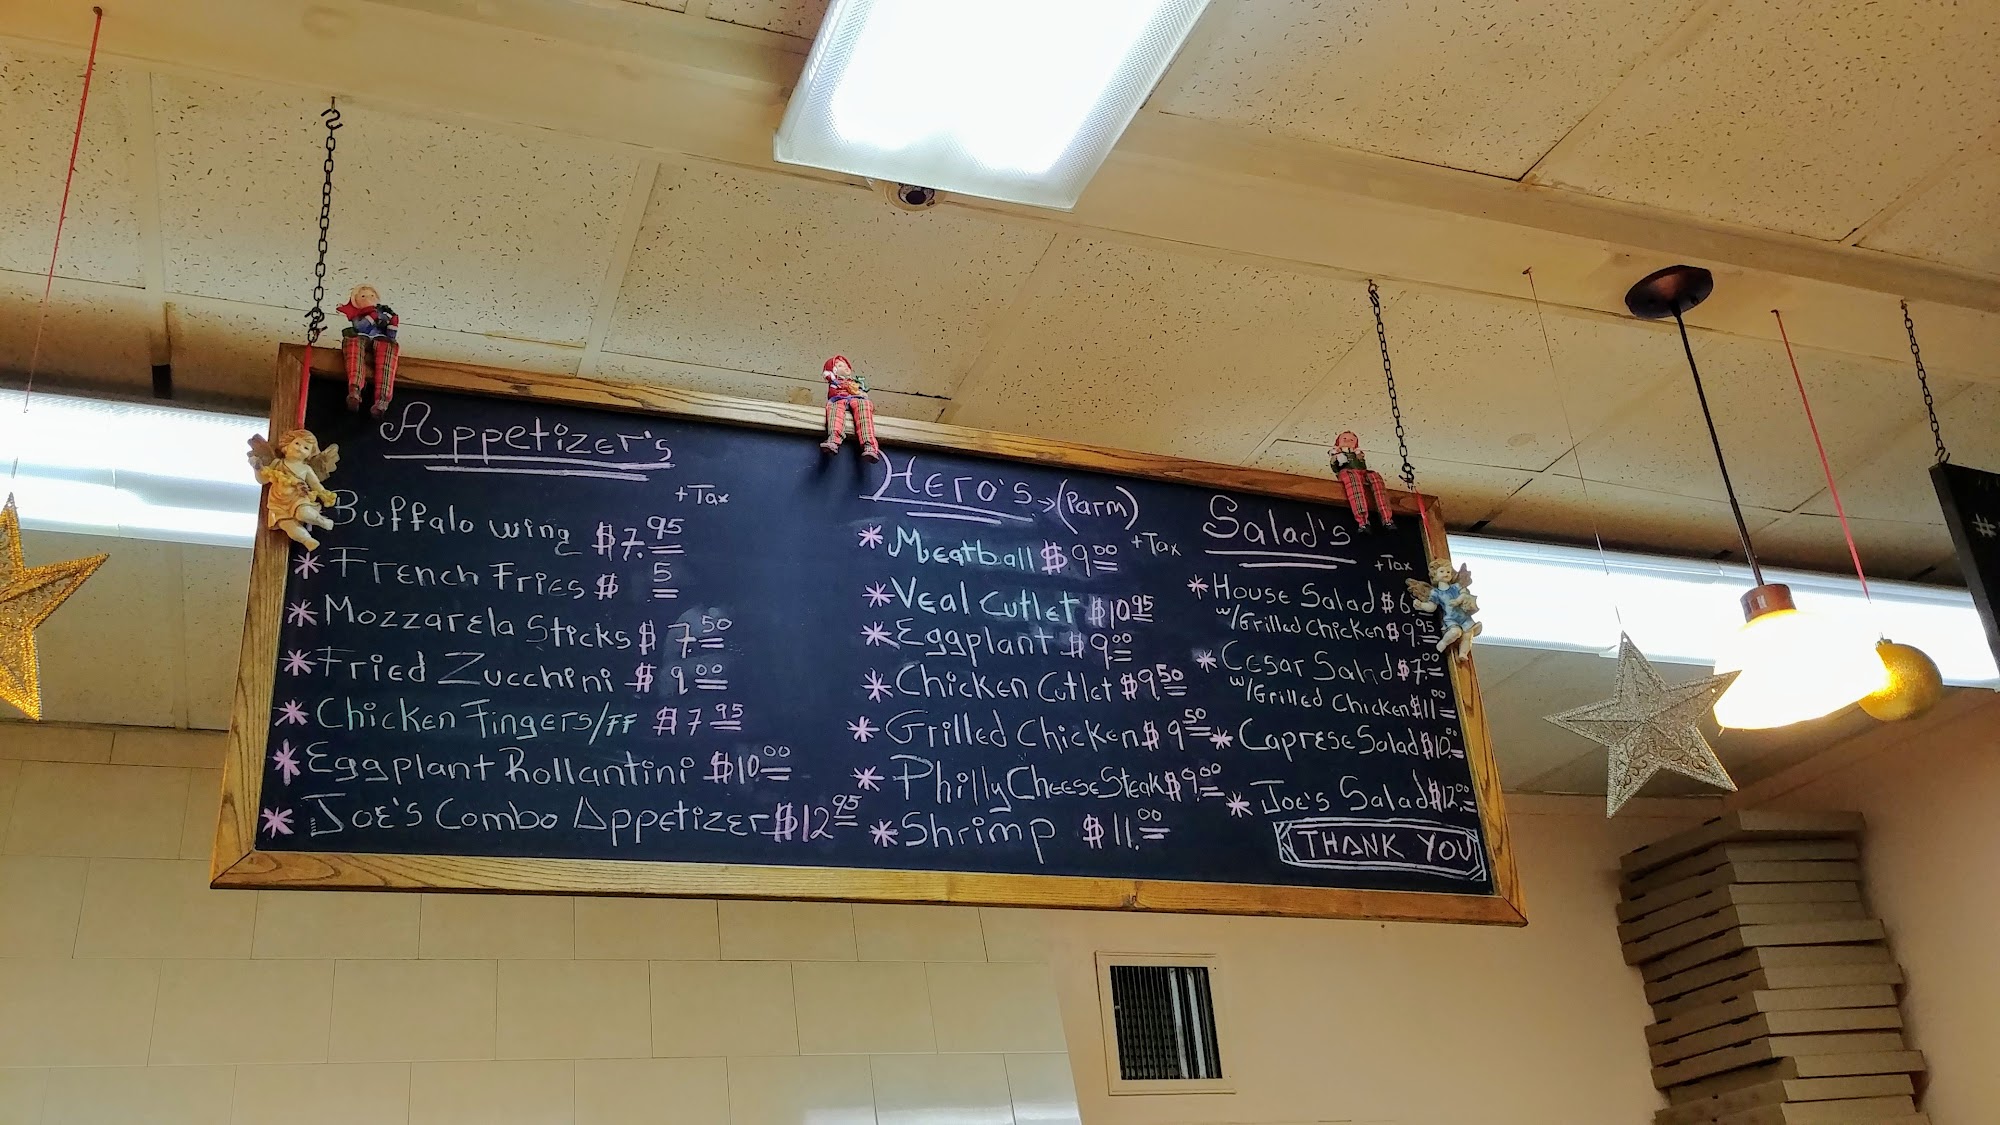 Appetizer's
+Tax
Buffalo wing $7.95
* French Fries $ 5
* Mozzarela Sticks $ 7.50
* Fried Zucchini $ 9.00
* Chicken Fingers/FF $ 7.95
* Eggplant Rollantini $10.00
* Joe's Combo Appetizer $12.95
Hero's → (Parm)
+Tax
* Meatball $ 9.00
* Veal Cutlet $10.95
* Eggplant $ 9.00
* Chicken Cutlet $9.50
* Grilled Chicken $ 9.50
* Philly Cheese Steak $9.00
* Shrimp $ 11.00
Salad's
+Tax
* House Salad $6.
w/Grilled Chicken $9.95
* Cesar Salad $7.00
w/Grilled Chicken $11.00
* Caprese Salad $10.00
* Joe's Salad $12.00
THANK YOU
#